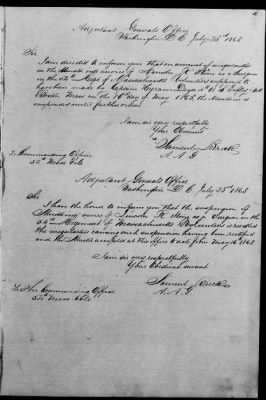 Adjutant Generals Office
Washington D C July 25th 1863
Sir
I am directed to inform you that on account of irregularities
in the Muster in of Lincoln R Stone as Surgeon
in the 54th Regt of Massachusetts Volunteers supposed to
have been made by Captain
on the 16th day of May 1863, the Muster in is
suspended until further orders
I am sir very respectfully
Your Obedient
Samuel Breck
A A G
To Commanding Officer
54th Mass Vols
Adjutant Generals Office
Washington D C July 28th 1863
Sir
I have the honor to inform you that the suspension of
Muster of Lincoln R. Stone as a Surgeon in the
54th Regiment of Massachusetts Volunteers is revoked
the irregularities causing such suspension having been rectified
and the Muster accepted at this Office to date from May 16th 1863
I am sir very respectfully
Your Obedient servant
Samuel Breck
A. A. G.
To The Commanding Officer
54th Mass Vols